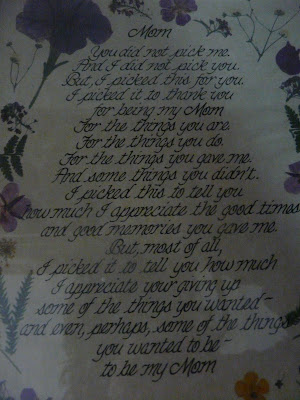 Mom
You did not pick me.
And I did not pick you.
But, I picked this for you.
I picked it to thank you
for being my Mom
For the things you are.
For the things you do.
For the things you gave me.
And some things you didn't.
I picked this to tell you
how much I appreciate the good times
and good memories you gave me.
But, most of all,
I picked it to tell you how much
I appreciate your giving up
some of the things you wanted-
and even, perhaps, some of the things
you wanted to be-
to be my Mom